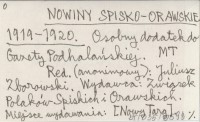 0
NOWINY SPISKO-ORAWSKIE
1919-1920. Osobny dodatek do
Gazety Podhalańskiej. MT
Red. (anonimowy): Juliusz
Zborowski. Wydawca: Związek
Polaków Spiskich i Orawskich.
Miejsce wydawania: [Nowy Targ